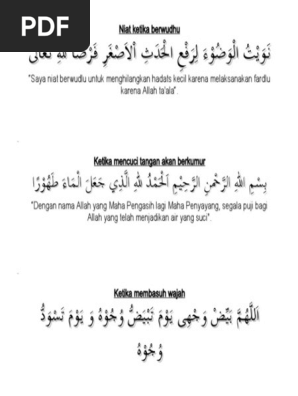 PDF
Niat ketika berwudhu
نَوَيْتُ الْوُضُوْءَ لِرَفْعِ الْحَدَثِ اْلاَصْغَرِ فَرْضًا لِلّٰهِ تَعَالَى
"Saya niat berwudlu untuk menghilangkan hadats kecil karena melaksanakan fardlu
karena Allah ta'ala".
Ketika mencuci tangan akan berkumur
بِسْمِ اللهِ الرَّحْمٰنِ الرَّحِيْمِ اَلْحَمْدُ لِلّٰهِ الَّذِي جَعَلَ الْمَاءَ طَهُوْرًا
"Dengan nama Allah yang Maha Pengasih lagi Maha Penyayang, segala puji bagi
Allah yang telah menjadikan air yang suci".
Ketika membasuh wajah
اَللّٰهُمَّ بَيِّضْ وَجْهِى يَوْمَ تَبْيَضُّ وُجُوْهُ وَ يَوْمَ تَسْوَدُّ
وُجُوْهُ